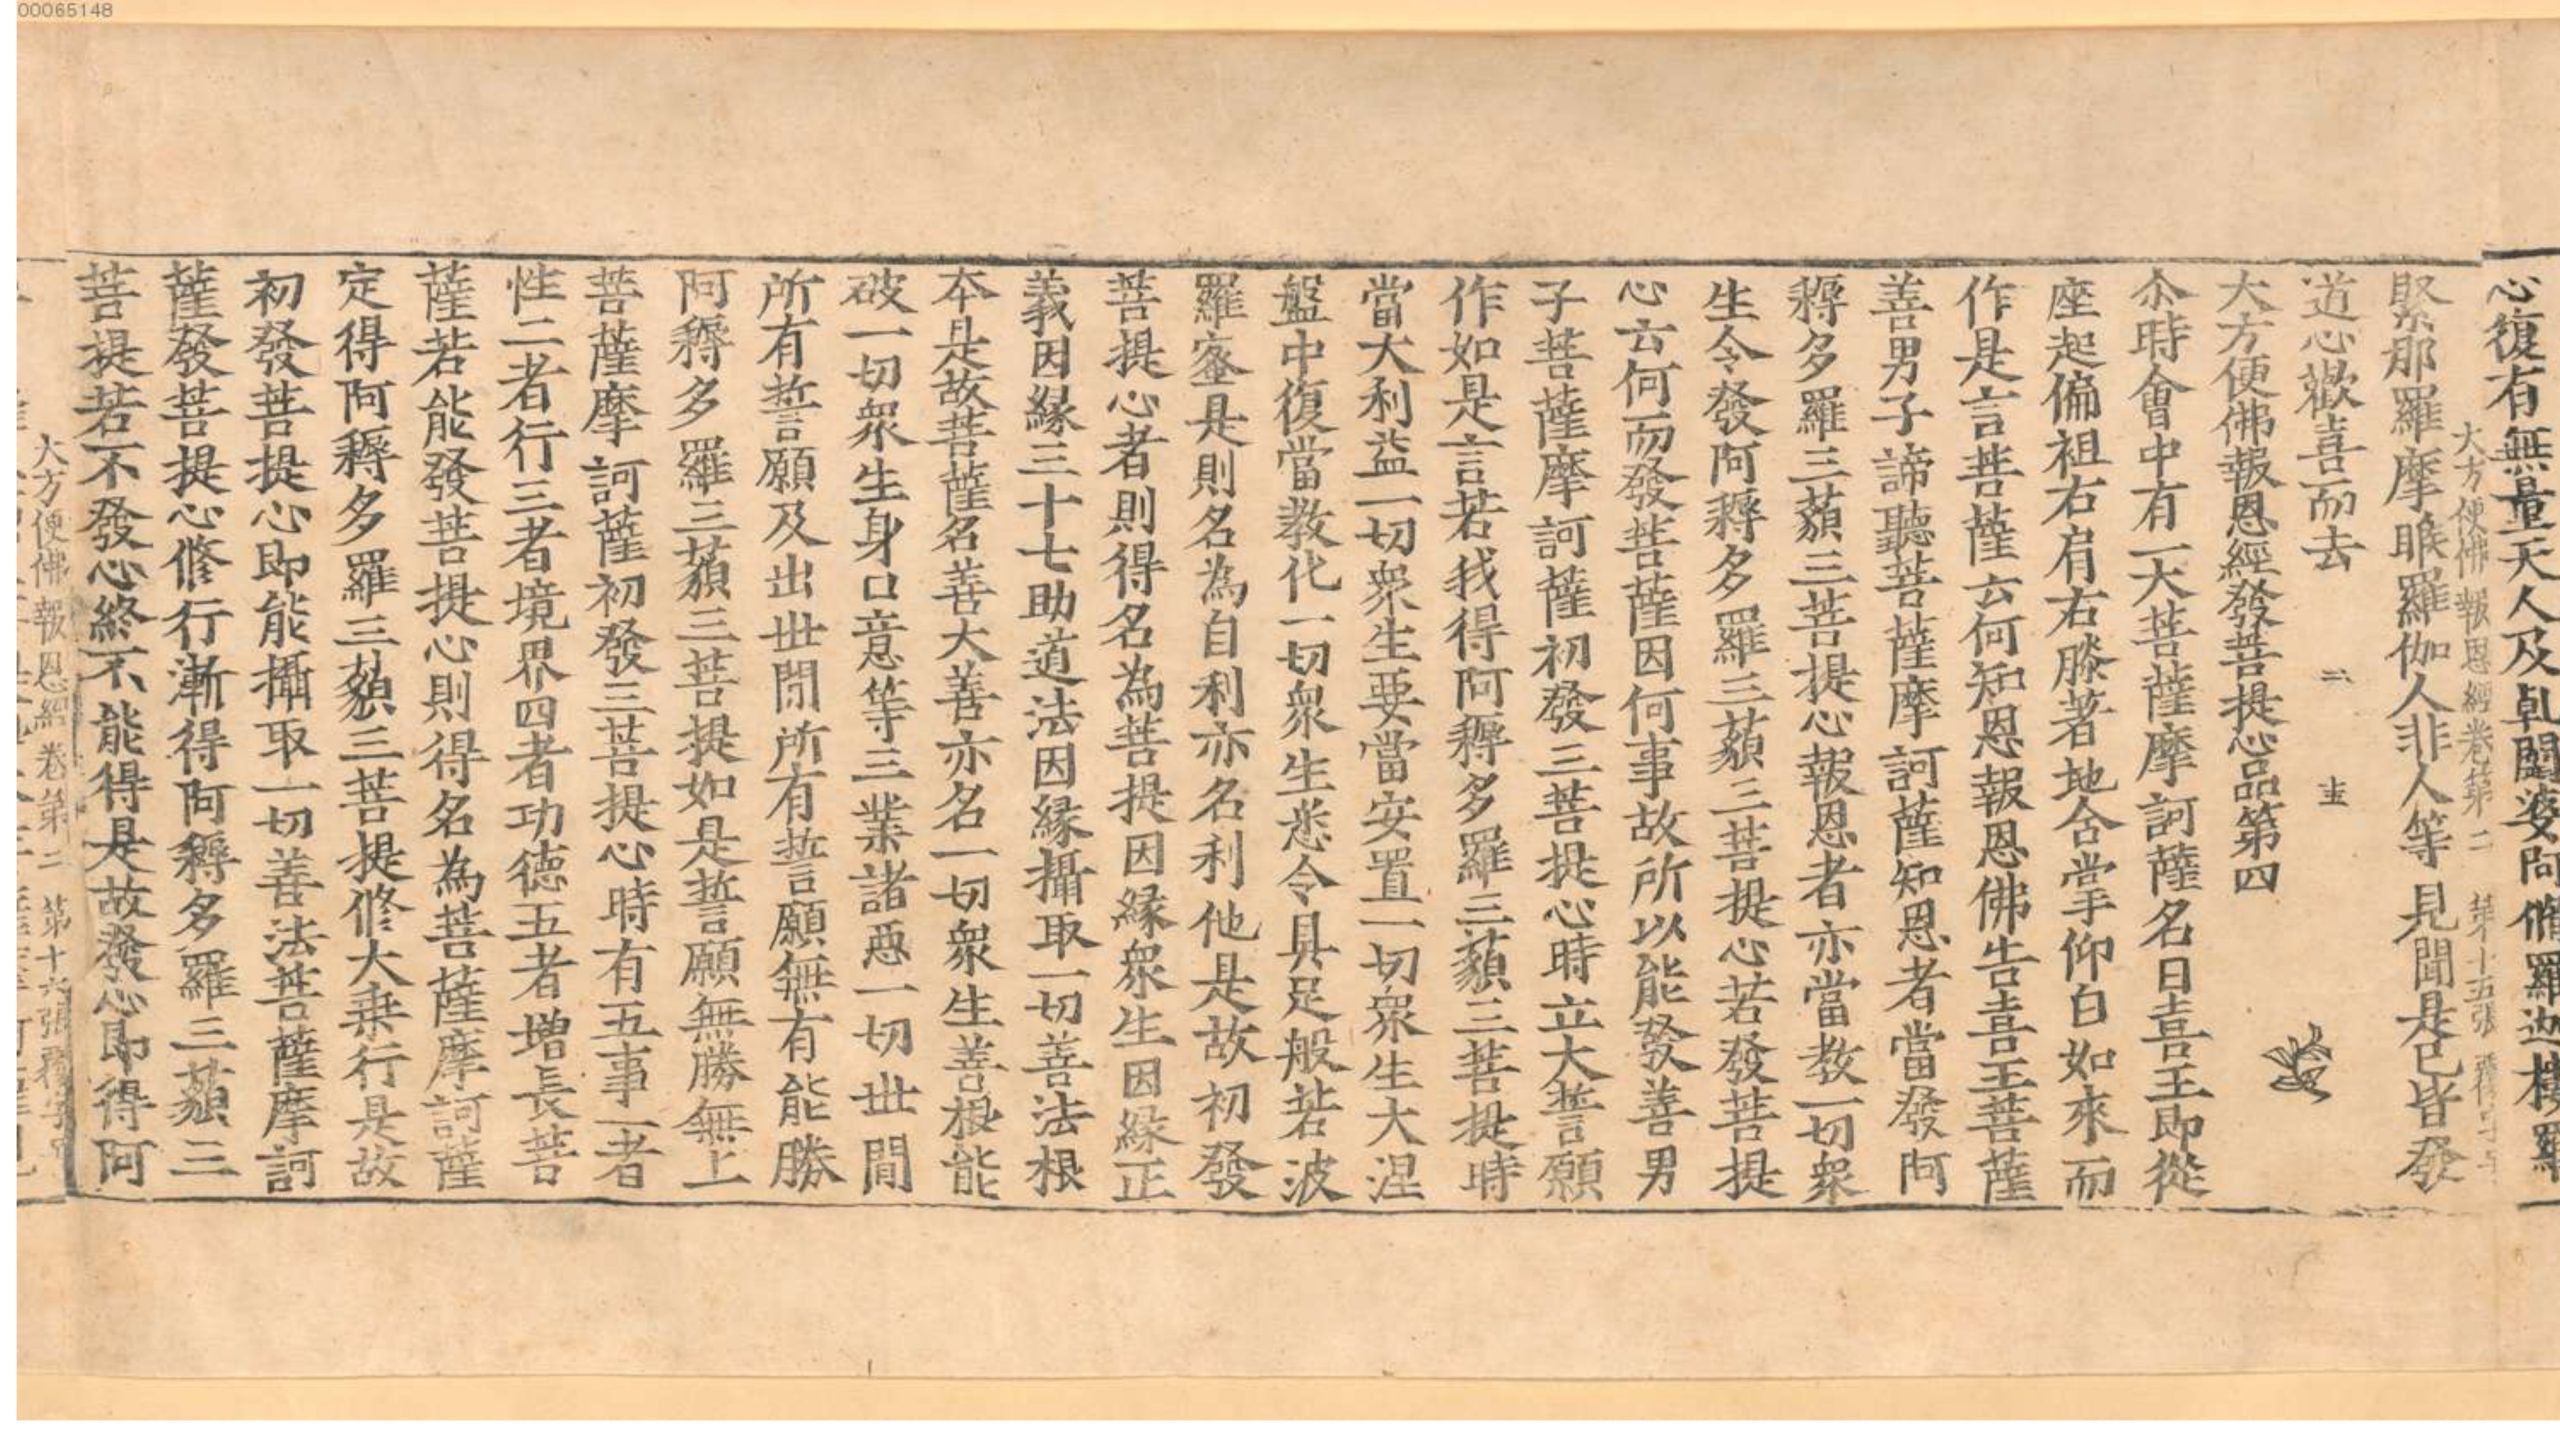 00065148
心復有無量天人及乹闥婆阿脩羅迦樓羅
大方便佛報恩經卷第二 第十五張
緊那羅摩睺羅伽人非人等見聞是已皆發
道心歡喜而去
大方便佛報恩經發菩提心品第四
尒時會中有一大菩薩摩訶薩名曰喜王即從
座起偏袒右肩右膝著地合掌仰白如來而
作是言菩薩云何知恩報恩佛告喜王菩薩
善男子諦聽菩薩摩訶薩知恩者當發阿
耨多羅三藐三菩提心報恩者亦當教一切衆
生令發阿耨多羅三藐三菩提心若發菩提
心云何而發菩薩因何事故所以能發善男
子菩薩摩訶薩初發三菩提心時立大誓願
作如是言若我得阿耨多羅三藐三菩提時
當大利益一切衆生要當安置一切衆生大涅
盤中復當教化一切衆生悉令具足般若波
羅蜜是則名為自利亦名利他是故初發
菩提心者則得名為菩提因緣衆生因緣正
義因緣三十七助道法因緣攝取一切善法根
本是故菩薩名善大善亦名一切衆生善根能
破一切衆生身口意等三業諸惡一切世間
所有誓願及出世閒所有誓願無有能勝
阿耨多羅三藐三菩提如是誓願無勝無上
菩薩摩訶薩初發三菩提心時有五事一者
性二者行三者境界四者功德五者增長菩
薩若能發菩提心則得名為菩薩摩訶薩
定得阿耨多羅三藐三菩提修大乗行是故
初發菩提心即能攝取一切善法菩薩摩訶
薩發菩提心修行漸得阿耨多羅三藐三
菩提若不發心終不能得是故發心即得阿
大方便佛報恩經卷第二 第十六張